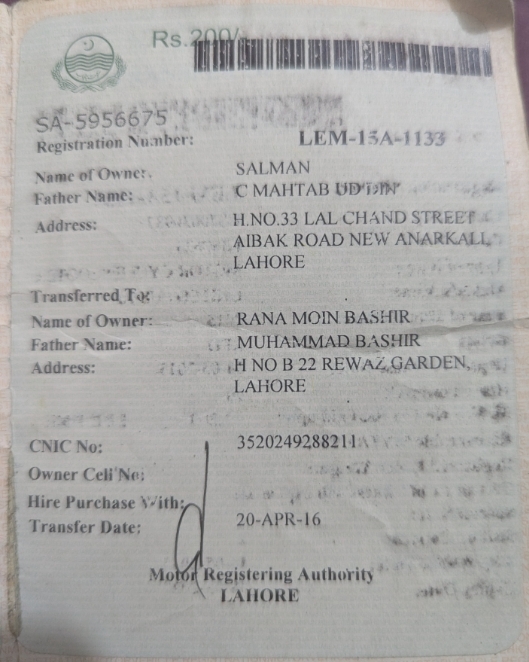 Rs.200/-
SA-5956675
Registration Number: LEM-15A-1133
Name of Owner: SALMAN
Father Name: C MAHTAB UD DIN
Address: H.NO.33 LAL CHAND STREET
AIBAK ROAD NEW ANARKALI,
LAHORE
Transferred To:
Name of Owner: RANA MOIN BASHIR
Father Name: MUHAMMAD BASHIR
Address: H NO B 22 REWAZ GARDEN,
LAHORE
CNIC No: 3520249288211
Owner Cell No:
Hire Purchase With:
Transfer Date: 20-APR-16
Motor Registering Authority
LAHORE